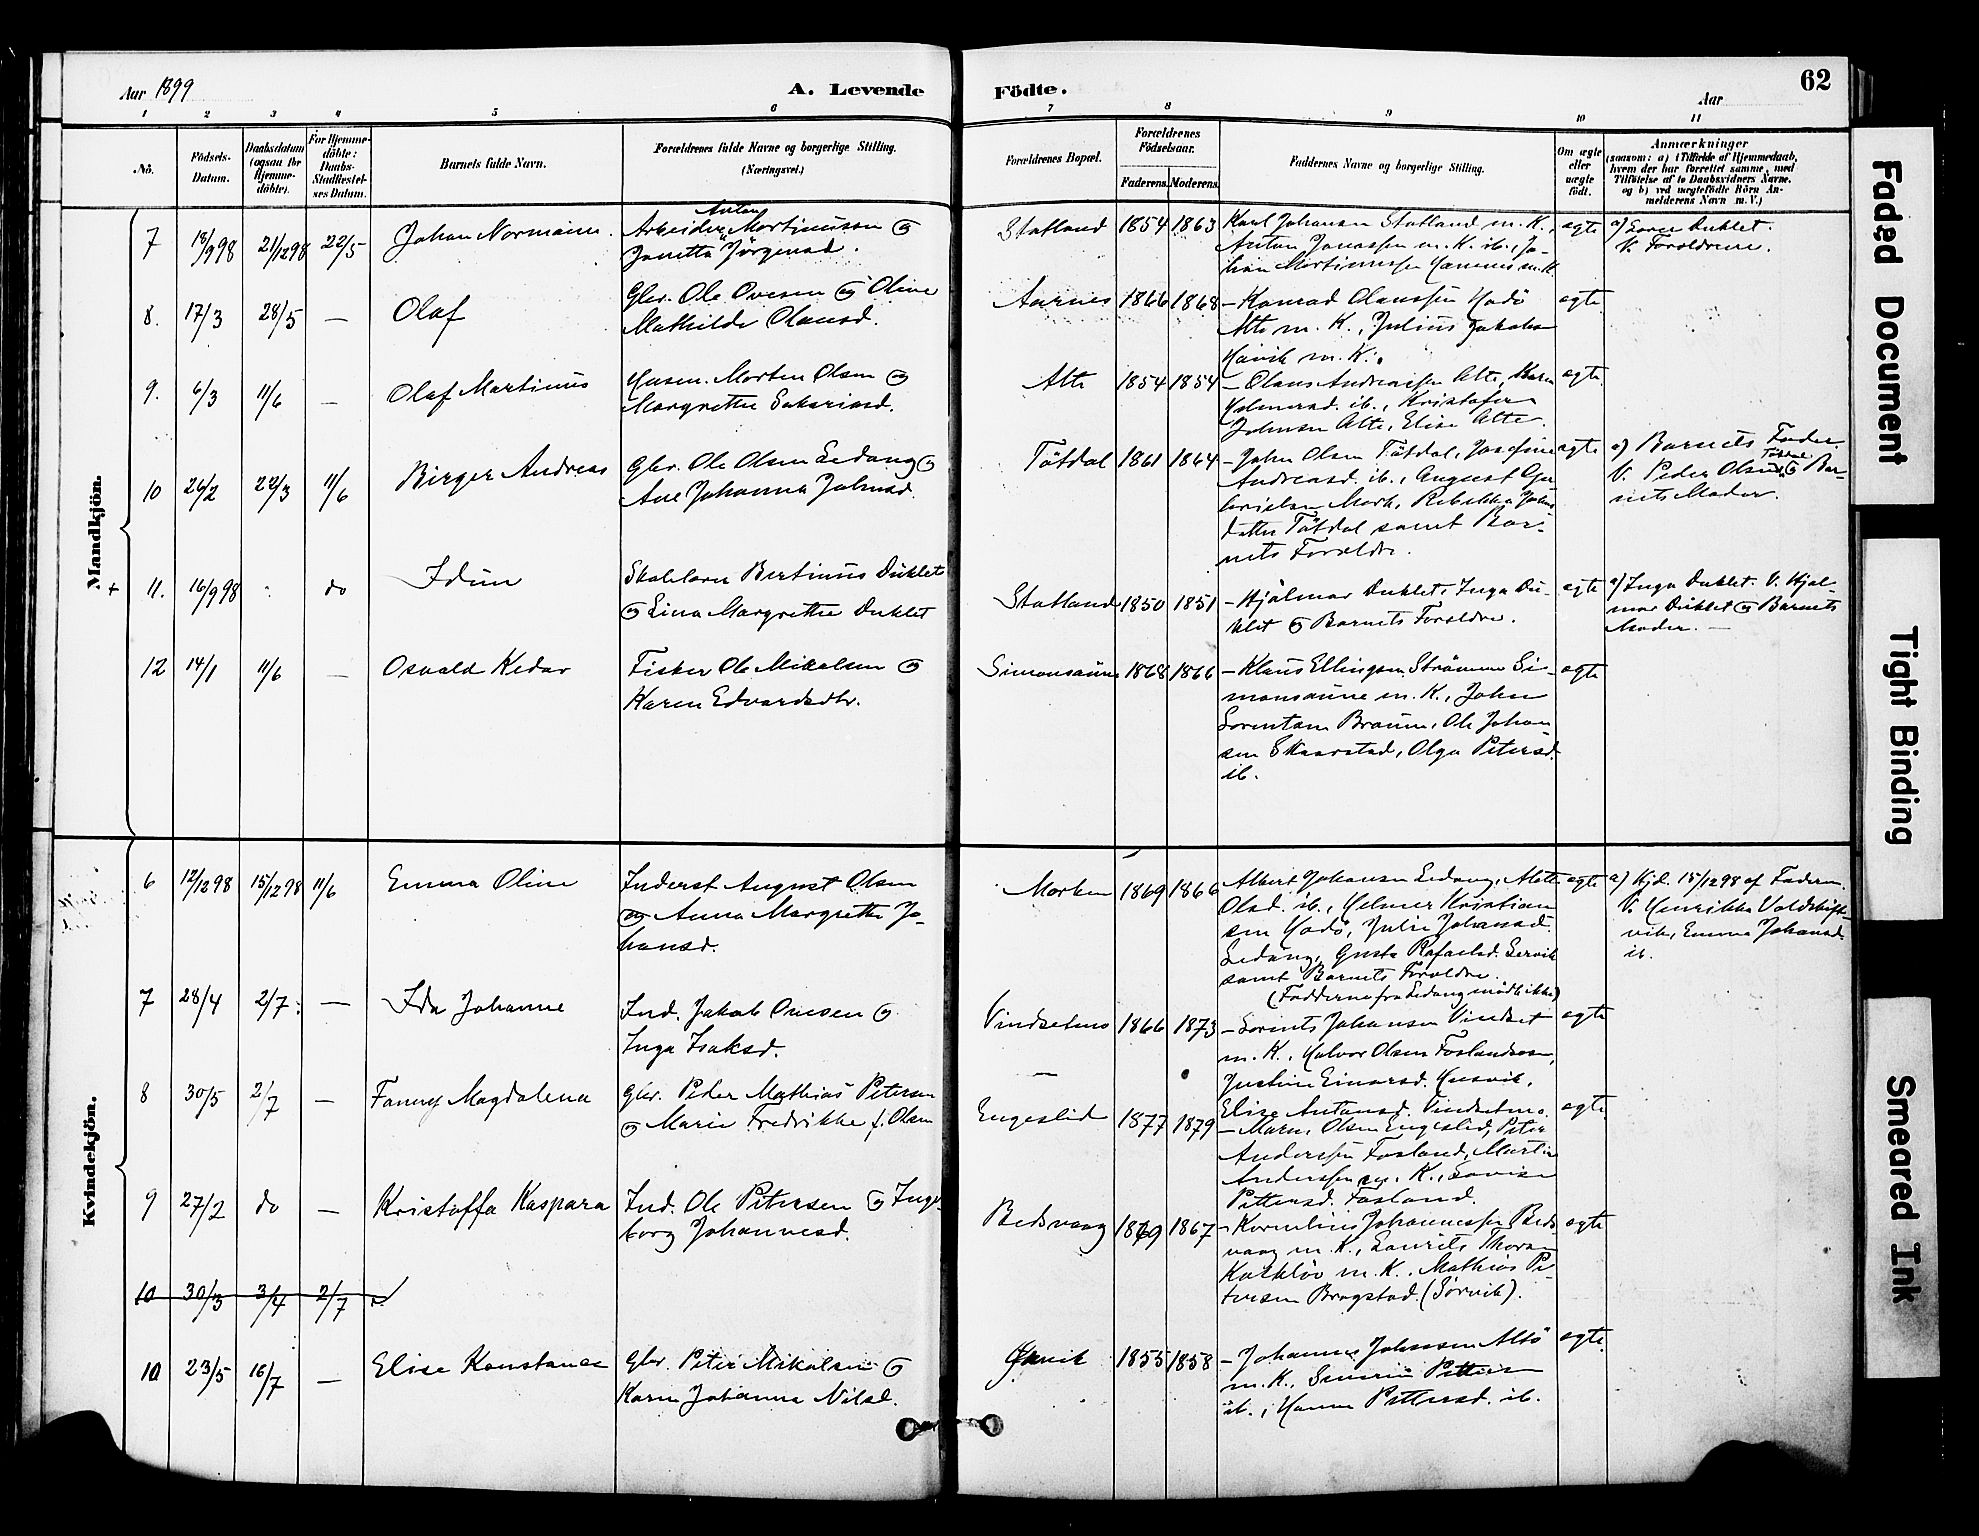 Aar 1899
A. Levende
Födte.
Aar
62
1 2 3 4 5 6 7 8 9 10 11
No.
Födsels-
Datum.
Daabsdatum
(ogsaa for
Hjemme-
döbte).
For Hjemme-
döbte:
Daabs-
Stadfæstel-
ses Datum.
Barnets fulde Navn.
Forældrenes fulde Navne og borgerlige Stilling.
(Næringsvei.)
Forældrenes Bopæl.
Forældrenes
Födselsaar.
Faderens. Moderens.
Faddernes Navne og borgerlige Stilling.
Om ægte
eller
uægte
födt.
Anmærkninger
(saasom: a) i Tilfælde af Hjemmedaab,
hvem der har forrettet samme, med
Tilföielse af to Daabsvidners Navne,
og b) ved uægtefödte Börn An-
melderens Navn m. V.)
Mandkjön.
7 18/9 98 21/12 98 22/5 Johan Normann.
Anton
Arbeider Martinussen og
Janetta Jörgensd.
Statland 1854 1863
Karl Johansen Statland m. K.,
Anton Jonassen m. K. ib., Jo-
han Martinussen m. K.
ægte
a) Duklet.
V. Forældrene.
8. 17/3 28/5 — Olaf
Gbr. Ole Ovesen og Oline
Mathilde Olausd.
Aarnes 1866 1868
— Konrad Olaussen Hodö
Alte m. K., Julius Jakobsen
Hövik m. K.
ægte
9. 6/3 11/6 — Olaf Martinus
Husm. Morten Olsen og
Margrethe Sakariasd.
Alte 1854 1854
— Olaus Andreassen Alte, Karen
Helmersd. ib., Kristofer
Johnsen Alte, Elise Alte.
ægte
10 26/2 22/3 11/6 Birger Andreas
Gbr. Ole Olsen Sedang og
Ane Johanna Johnsd.
Tötdal 1861 1864
— John Olsen Tötdal, Josefine
Andreasd. ib., August Ga-
brielsen Mork, Rebekka Johns
datter Tötdal samt Bar-
nets Forældre.
ægte
a) Barnets Fader.
V. Peder Olsen Tötdal og Bar-
nets Moder.
+ 11. 16/9 98 do Idun
Skolelærer Bertinus Duklet
og Lina Margrethe Duklet
Statland 1850 1851
— Hjalmar Duklet, Inga Du-
klet og Barnets Forældre.
ægte
a) Inga Duklet. V. Hjal-
mar Duklet og Barnets
Moder. —
12 14/1 11/6 — Osvald Kedar
Fisker Ole Mikalsen og
Karen Edvardsdtr.
Simonsaune 1868 1866
— Klaus Ellingsen Strömmen Si-
monsaune m. K., Johan
Sorentsen Braune, Ole Johan-
sen Skaarstad, Olga Petersd.
ib.
ægte
Kvindekjön.
6 12/12 98 15/12 98 11/6 Emma Oline
Inderst August Olsen
og Anna Margrethe Jo-
hansd.
Morken 1869 1866
Albert Johansen Sedang, Mette
Olsd. ib., Helmer Kristian
sen Hodö, Julie Johansd.
Sedang, Gusta Rafaelsd. Servik
samt Barnets Forældre.
(Fadderne fra Sedang mödte ikke)
ægte
a) Hjd. 15/12 98 af Faderen.
V. Henrikke Valdskift-
vik, Emma Johansd.
ib.
7 28/4 2/7 — Ida Johanne
Ind. Jakob Ovesen og
Inga Isaksd.
Vindsetmo 1866 1873
— Lorents Johansen Vindset
m. K., Halvor Olsen Foslandsosen,
Justine Einarsd. Husvik,
Elise Antonsd. Vindsetmo.
ægte
8 30/5 2/7 — Fanny Magdalena
Gbr. Peder Mathias Petersen
og Marie Fredrikke f. Olsen
Engeslid 1877 1879
— Olsen Engeslid, Peter
Anderssen Fosland, Martin
Anderssen m. K., Lovise
Pettersd. Fosland.
ægte
9 27/2 do — Kristoffa Kaspara
Ind. Ole Petersen og Inge-
borg Johannesd.
Bedsvaag 1869 1867
— Kornelius Johannessen Beds
vaag m. K., Laurits Thorsen
m. K., Mathias Pe-
tersen Bragstad (Sörvik).
ægte
10 30/3 3/4 2/7
10 23/5 16/7 — Elise Konstance
Gbr. Peter Mikalsen og
Karen Johanna Nilsd.
1855 1858
— Johannes Johnsen Altö
m. K., Severin Pettersen
ib., Hanna Pettersd. ib.
ægte
Faded Document
Tight Binding
Smeared Ink